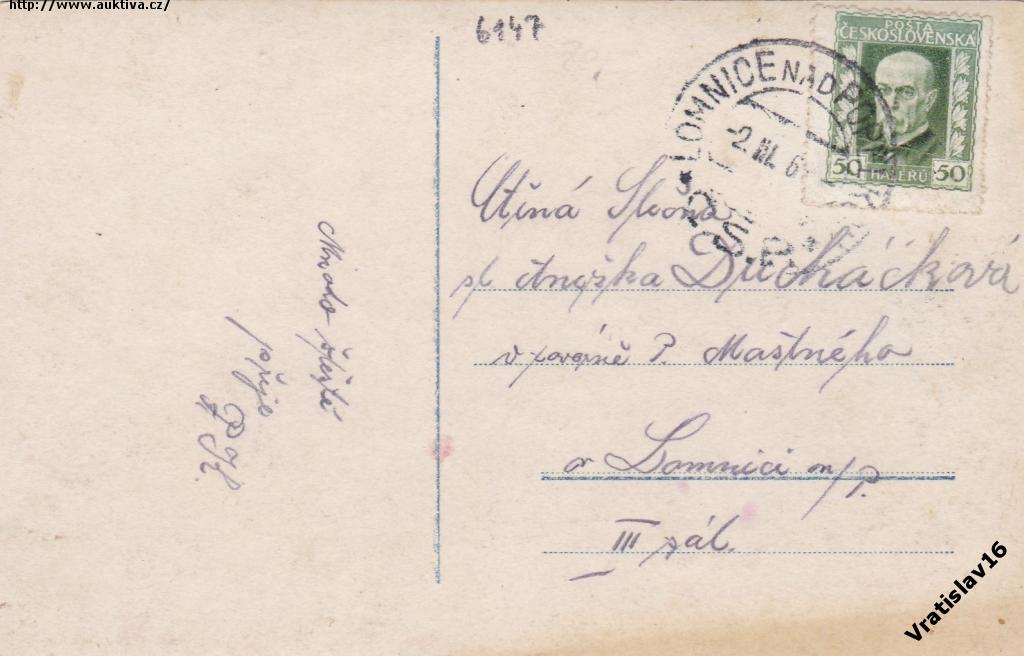 http://www.auktiva.cz/
6147
POŠTA
ČESKOSLOVENSKÁ
50 HALÉŘŮ 50
LOMNICE NAD POP
-2.III.6
Ctěná Slečna
sl. Anežka Ducháčková
v továrně P. Mastného
v Lomnici n/P.
III sál.
Mnoho štěstí
přeje
Vratislav16